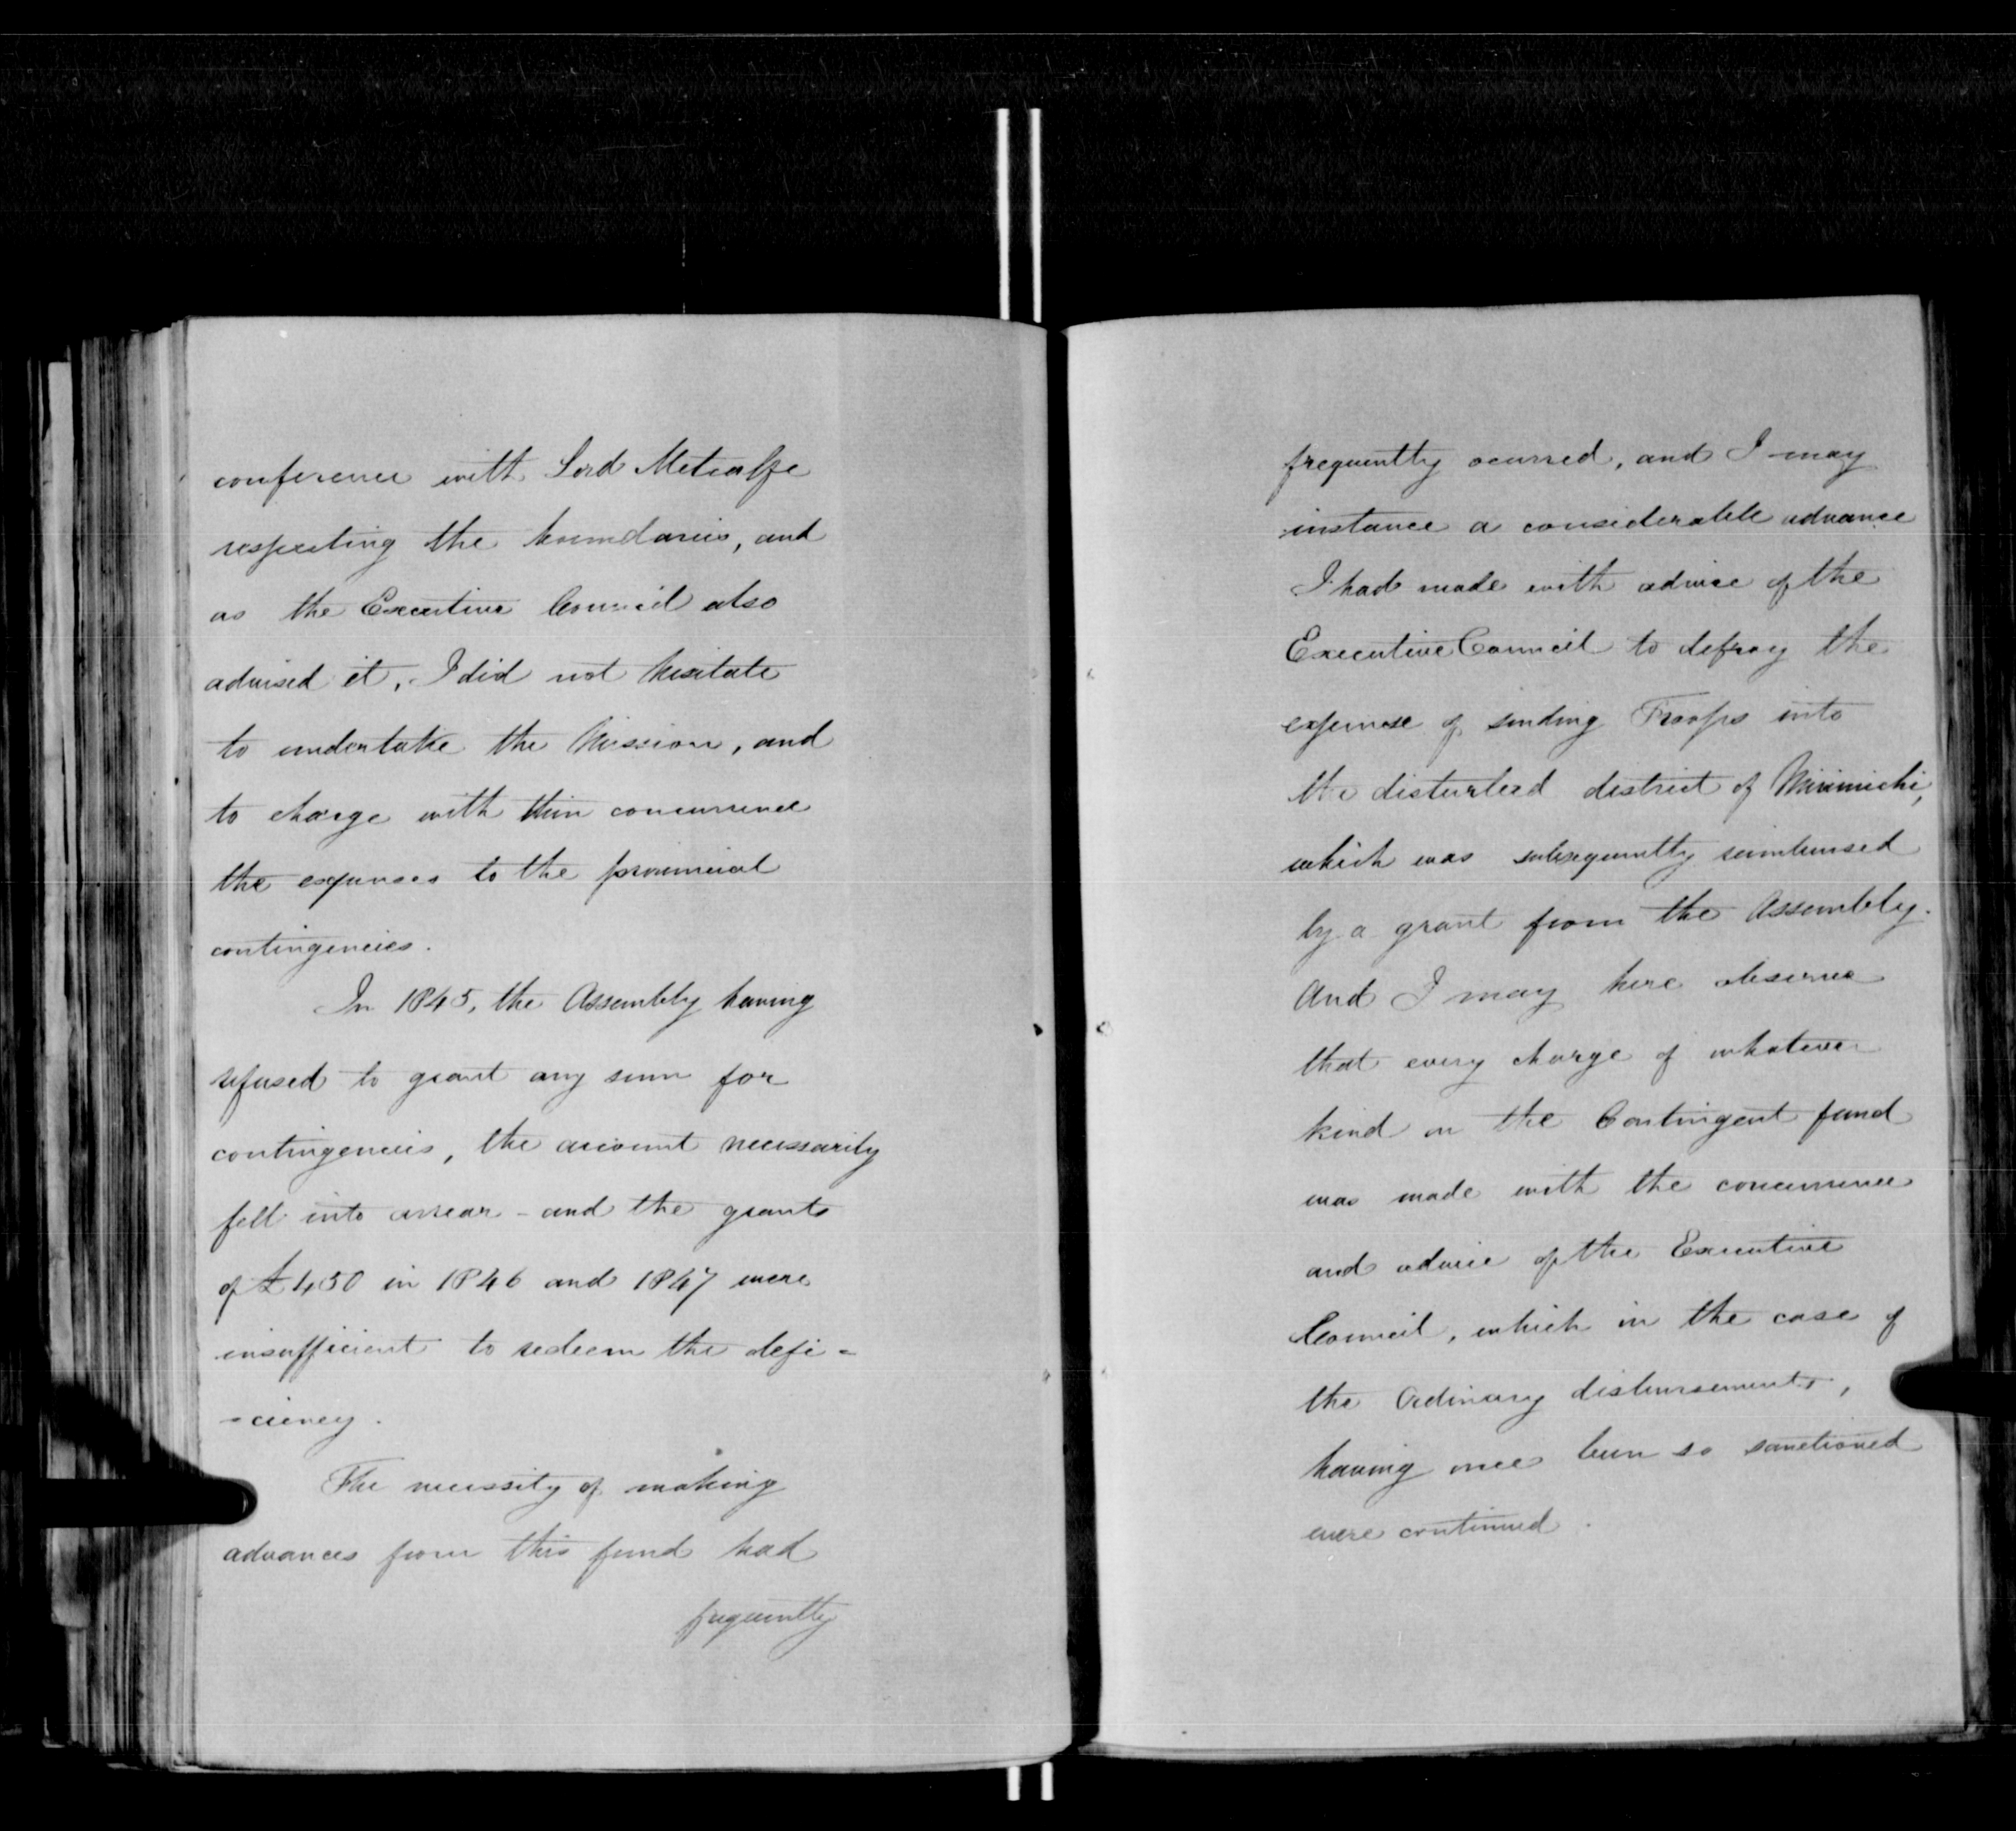 conference with Lord Metcalfe
respecting the boundaries, and
as the Executive Council also
advised it, I did not hesitate
to undertake the Mission, and
to charge with their concurrence
the expenses to the provincial
contingencies.
In 1845, the Assembly having
refused to grant any sum for
contingencies, the account necessarily
fell into arrear - and the grants
of £450 in 1846 and 1847 were
insufficient to redeem the defi-
-ciency.
The necessity of making
advances from this fund had
frequently
frequently ocurred, and I may
instance a considerable advance
I had made with advice of the
Executive Council to defray the
expense of sending Troops into
the disturbed district of Mirimichi,
which was subsequently reimbursed
by a grant from the Assembly.
And I may here observe
that every charge of whatever
kind on the Contingent fund
was made with the concurrence
and advice of the Executive
Council, which in the case of
the Ordinary disbursements,
having once been so sanctioned
were continued.